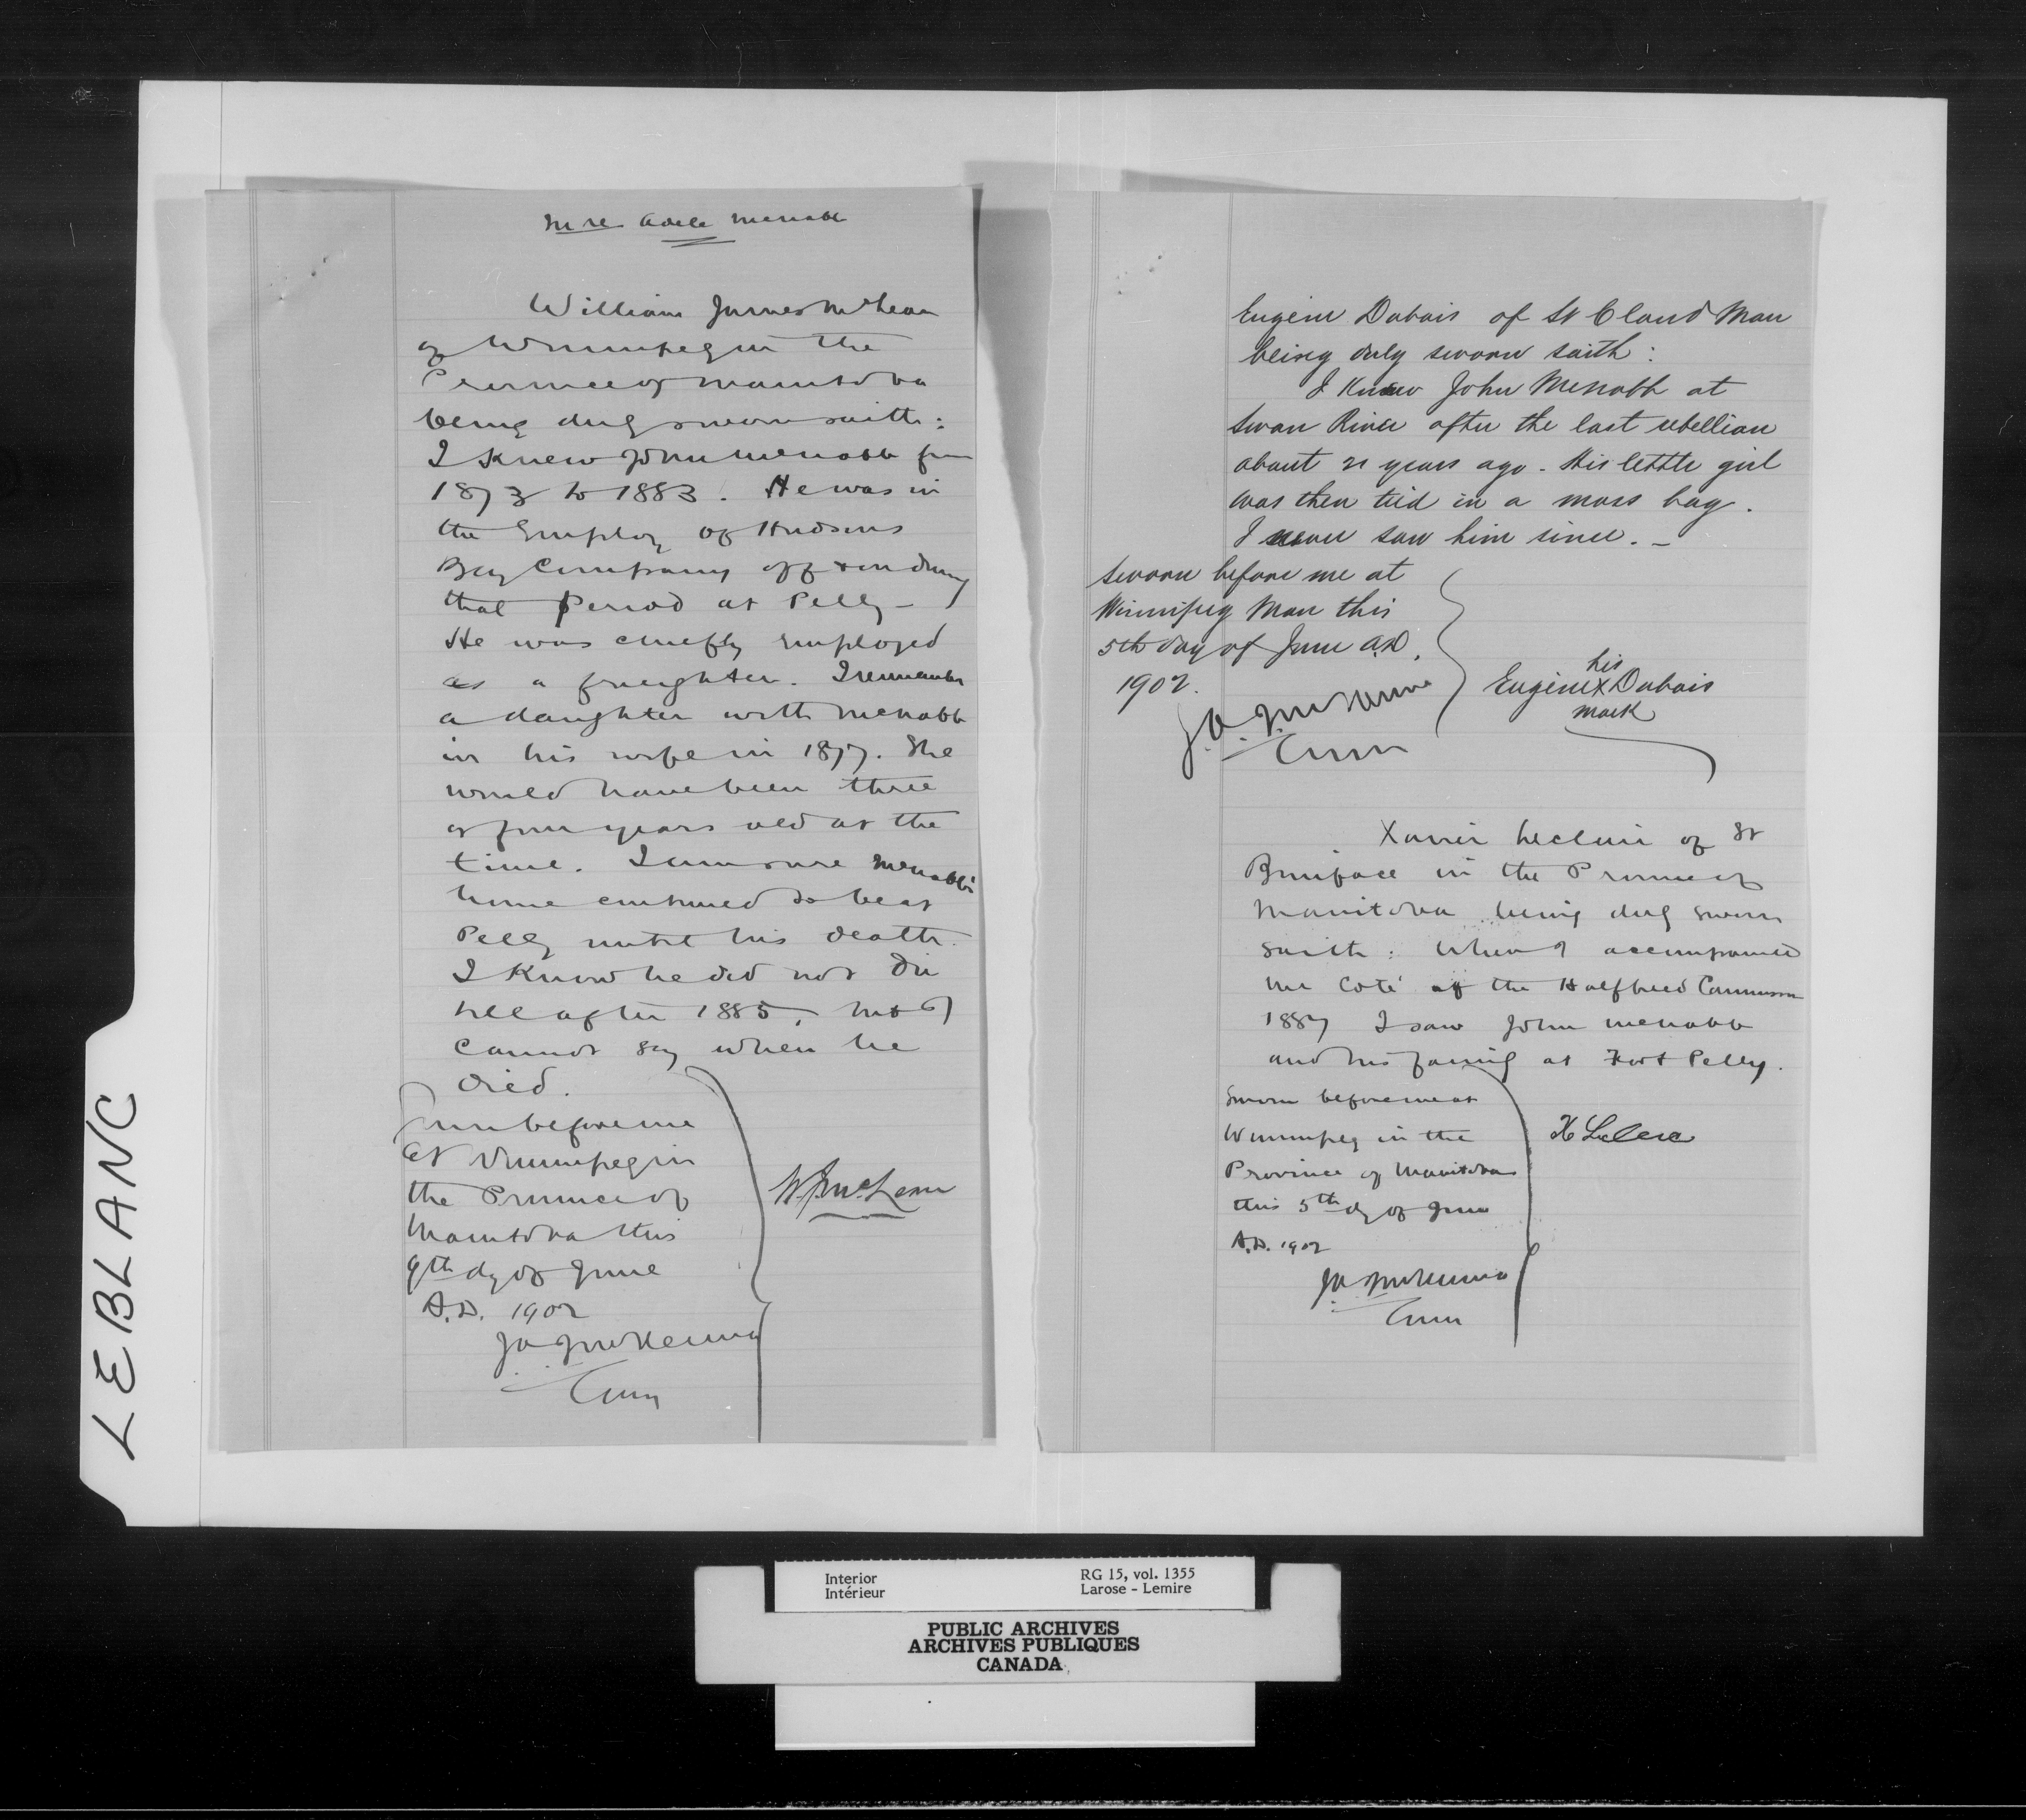 In re Adele McNabb
William James McLean
of Winnipeg in the
Province of Manitoba
being duly sworn saith:
I Knew John McNabb from
1873 to 1883. He was in
the Employ of Hudsons
Bay Company off & on during
that Period at Pelly -
He was chiefly employed
as a freighter. I remember
a daughter with McNabb
in his wife in 1877. She
would have been three
or four years old at the
time. I am sure McNabb's
home continued to be at
Pelly until his death.
I Know he did not die
till after 1885, but I
cannot say when he
died.
Sworn before me
at Winnipeg in
the Province of
Manitoba this
9th dy of June
A.D. 1902
J A J McKenna
Com
W. J. McLean
Eugene Dubois of St Claud Man
being duly sworn saith:
I Knew John McNabb at
Swan River after the last rebellion
about 21 years ago. His little girl
was then tied in a moss bag.
I never saw him since. -
Sworn before me at
Winnipeg Man this
5th day of June A.D.
1902.
J. A. J. McKenna
Com
his
Eugene X Dubois
mark
Xavier Leclair of St
Boniface in the Province of
Manitoba being duly sworn
saith: When I accompanied
Mr Coté of the Halfbreed Commission
1887 I saw John McNabb
and his family at Fort Pelly.
Sworn before me at
Winnipeg in the
Province of Manitoba
this 5th dy of June
A.D. 1902
J A J McKenna
Com
X Leclerc
LEBLANC
Interior
Intérieur
RG 15, vol. 1355
Larose - Lemire
PUBLIC ARCHIVES
ARCHIVES PUBLIQUES
CANADA